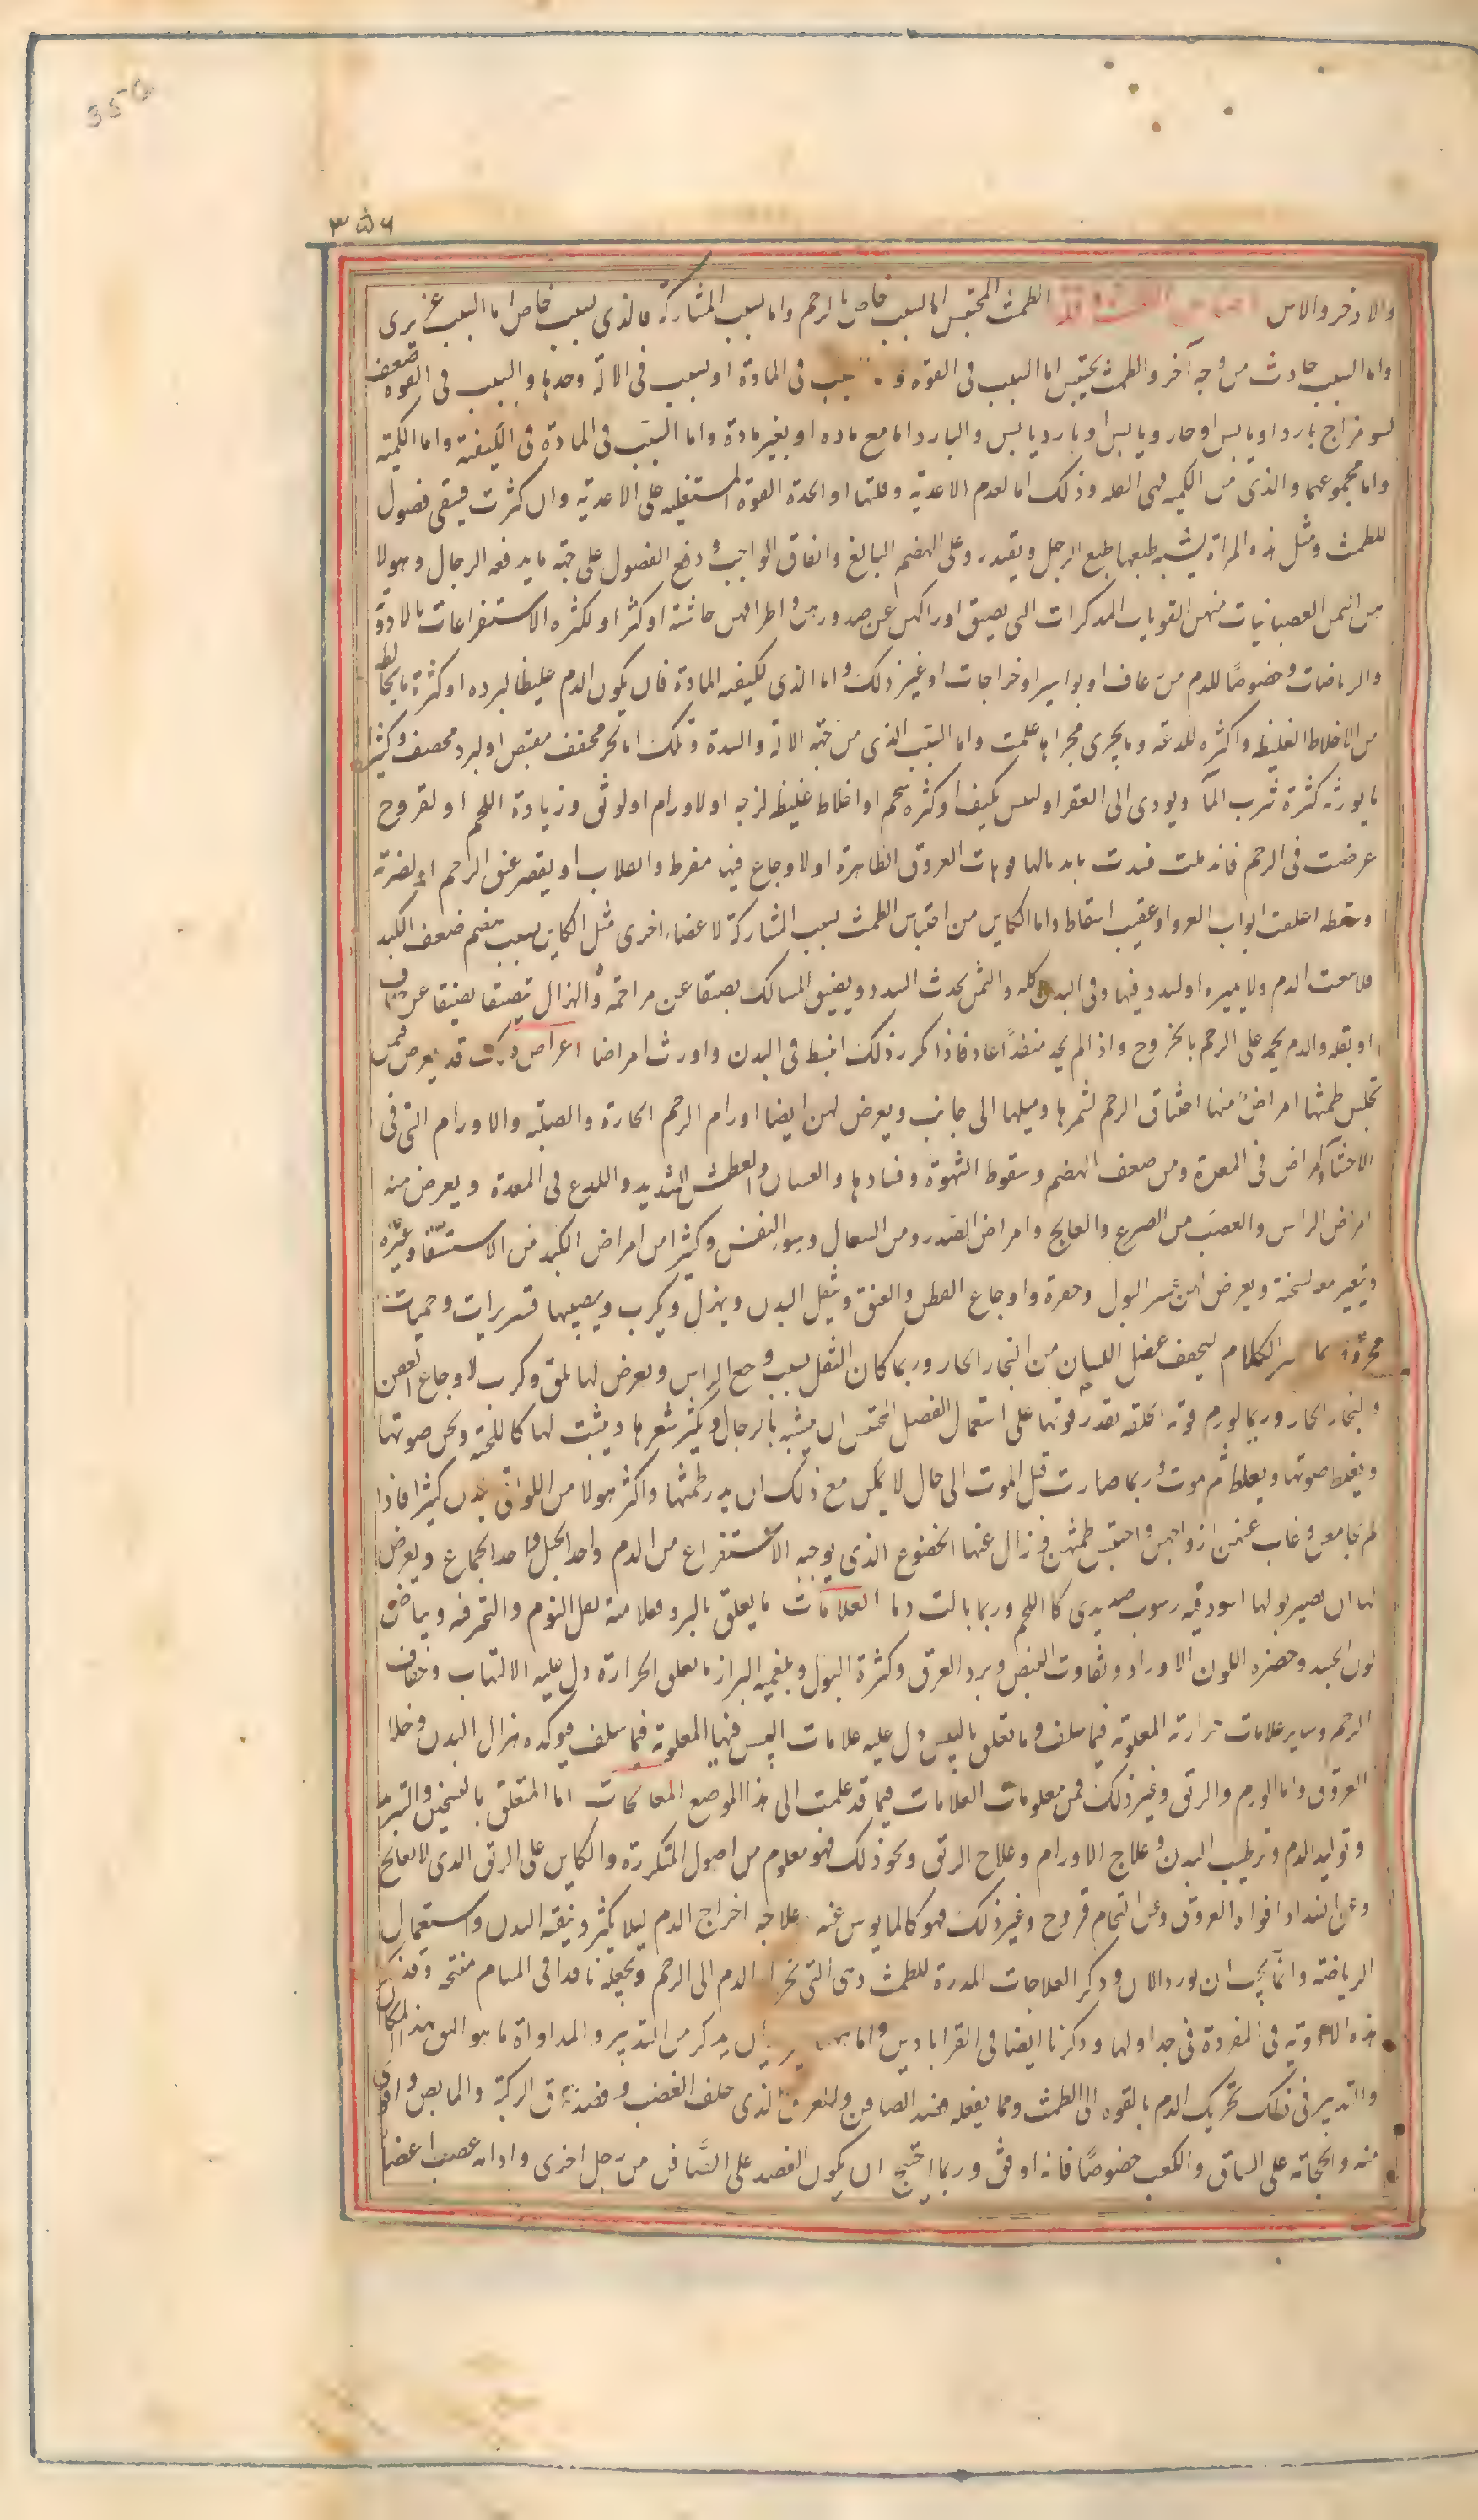 350
۳۵۶
والاذخر والاس احتباس الطمث وقلته الطمث المحتبس اما لسبب خاص بالرحم واما لسبب المشاركة فالذى بسبب خاص اما لسبب غريزى
واما لسبب حادث من وجه آخر والطمث يحتبس اما لسبب فى القوة و سبب فى المادة او لسبب فى الآلة وحدها والسبب فى القوة ضعف
لسو مزاج بارد او يابس او حار ويابس او بارد يابس والبارد اما مع ماده او بغير مادة واما السبب فى المادة فى الكيفية واما الكمية
واما مجموعهما والذى من الكميه فهى القله وذلك اما لعدم الاغذية وقلتها او الحدة القوة المستعليه على الاغدية وان كثرت فيبقى فضول
للطمث ومثل هذه المراة يشبه طبعها طبع الرجل ويقدر وعلى الهضم البالغ وانفاق الواجب ودفع الفضول على جهة ما يدفعه الرجال وهولا
من السمن العصبانيات منهن القويات المذكرات التى يضيق اوراكهن عن صدورهن واطرافهن جاسئة اوكثر او لكثره الاستفراعات بالادوية
والرياضات وخصوصًا للدم من رعاف او بواسير او خراجات او غير ذلك واما الذى لكيفيه المادة فان يكون الدم غليظا لبرده او كثرة ما يخالطه
من الاخلاط الغليظه واكثره للدعة وما يجرى مجراها علمت واما السبب الذى من جهة الآلة والسدة وتلك اما لحر مجفف مقبض او لبرد محصف وكثيرا
ما يورثه كثرة شرب المآ ويودى الى العقر او ليبس يكيف او كثرة شحم او اخلاط غليظ لزجه او لاورام او لرتق وزيادة اللحم او لقروح
عرضت فى الرحم فاندملت فسدت باندمالها فوهات العروق الظاهرة او لاوجاع فيها مفرط وانقلاب او يقصر عنق الرحم او لضربة
وسقطه اغلقت ابواب العروق وعقيب اسقاط واما الكاين من احتباس الطمث لسبب المشاركة لاعضاء اخرى مثل الكاين بسبب منهم ضعف الكبد
فلا يبعث الدم ولا يميزه او لسدد فيها وفى البدن كله والسمن يحدث السدد ويضيق المسالك بضيقا عن مزاحمة والهزال تضيقا يضيقا عن جفاف
او بقله والدم يحمه على الرحم بالخروج واذا لم يجد منفذًا عاد فاذا كرر ذلك انبسط فى البدن واورث امراضا اعراض ذلك قد يعرض لمن
تحبس طمثها امراضٌ منها اختناق الرحم لشمرها وميلها الى جانب ويعرض لهن ايضا اورام الرحم الحارة والصلبه والاورام التى فى
الاحشآء وامراض فى المعدة ومن ضعف الهضم وسقوط الشهوة وفسادها والغثيان والعطش الشديد واللدع فى المعدة ويعرض منه
امراض الراس والعصب من الصرع والفالج وامراض الصدر ومن السعال وسو النفس وكثيرا من امراض الكبد من الاستسقاء وغيره
وتغير معه لسحنة ويعرض لهن عسر البول وحصره واوجاع القطن والعنق ويثقل البدن ويهزل ويكرب ويصيبها قشعريرات وحميات
محرقة ربما الكلام ليجفف عضل اللسان من البخار الحار وربما كان الثقل بسبب وجع الراس ويعرض لها قلق وكرب لاوجاع العفن
والبخار الحار وربما لورم فوته الخلقه بقدر قوتها على استعمال الفضل المحتبس ان يشبه بالرجال ويكثر شعرها وينبت لها كاللحية ويخشن صوتها
ويغلظ صوتها ويغلظ ثم موت وربما صارت قبل الموت الى حال لا يمكن مع ذلك ان يدر طمثها واكثر هولا من اللواتى يلدن كثيرا فاذا
لم يجامعن وغاب عنهن ازواجهن واحتبس طمثهن فزال عنها الخضوع الذى يوجبه الاستفراع من الدم واحد الحبل واحد الجماع ويعرض
لها ان يصير بولها اسود فيه رسوب صديدى كاللحم وربما بالت دما العلامات ما يعلق بالبرد فعلامته ثقل النوم والتحرقه وبياض
لون الجسد وخضره اللون الاوراد وتفاوت النبض وبرد العرق وكثرة البول وبلغميه البراز ما تعلق الحرارة دل عليه الالتهاب وجفاف
الرحم وساير علامات حرارته المعلومة فيما سلف وما تعلق باليبس دل عليه علامات اليبس فيها المعلومة فيما سلف فيوكده هزال البدن وخلا
العروق واما الورم والرتق وغير ذلك فمن معلومات العلامات فيما قد علمت الى هذا الموضع المعالجات اما المتعلق بالتسخين والتبريد
وتوليد الدم وترطيب البدن وعلاج الاورام وعلاج الرتق ونحو ذلك فهو معلوم من اصول المتكررة والكاين على الرتق الذى لا يعالج
وعن انسداد افواه العروق وعن التحام قروح وغير ذلك فهو كالمايوس عنه علاجه اخراج الدم ليلا يكثر وتنقية البدن واستعمال
الرياضة وانما يجب ان نورد الان ذكر العلاجات المدرة للطمث وهى التى تحرك الدم الى الرحم وتجعله نافدا فى المسام منتحه وقد ذكرنا
هذه الادوية فى المفردة فى جداولها وذكرنا ايضا فى القراباديں واما ان يذكر من التدبير والمداواة ما هو اليق بهذا المكان
والتدبير فى ذلك تحريك الدم بالقوه الى الطمث ومما يفعله فصد الصافن والعرق الذى خلف العقب وفصد عرق الركبة والمابض واقوى
منه والحجامة على الساق والكعب خصوصًا فانه اوفق وربما احتيج ان يكون الفصد على الصافن من رجل اخرى وادامه عصب اعضا